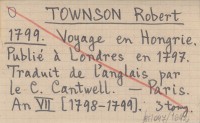 TOWNSON Robert
1799. Voyage en Hongrie.
Publié à Londres en 1797.
Traduit de l'anglais par
le C. Cantwell. — Paris.
An VII [1798-1799]. 3 tom.